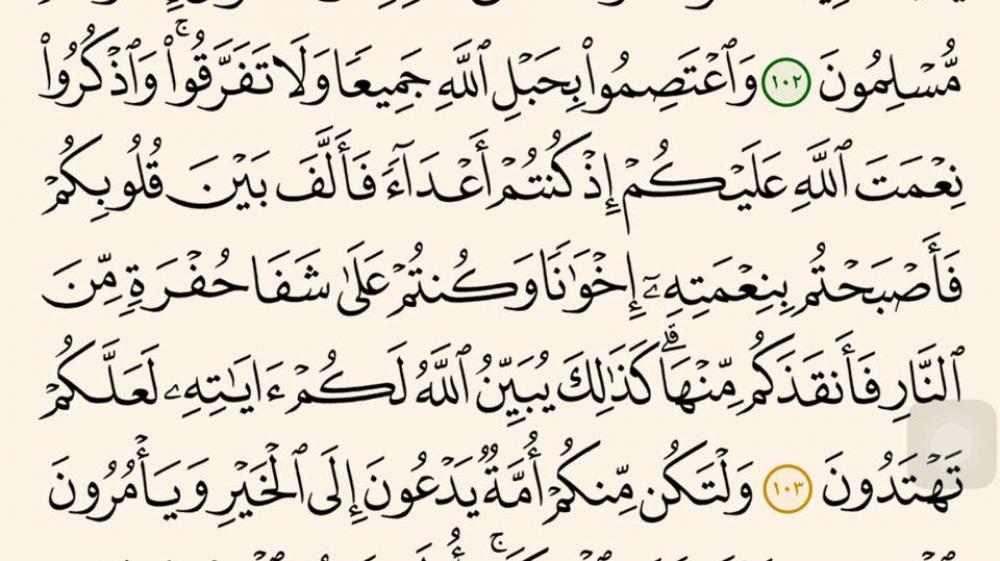 مُّسۡلِمُونَ ١٠٢ وَٱعۡتَصِمُواْ بِحَبۡلِ ٱللَّهِ جَمِيعٗا وَلَا تَفَرَّقُواْۚ وَٱذۡكُرُواْ
نِعۡمَتَ ٱللَّهِ عَلَيۡكُمۡ إِذۡ كُنتُمۡ أَعۡدَآءٗ فَأَلَّفَ بَيۡنَ قُلُوبِكُمۡ
فَأَصۡبَحۡتُم بِنِعۡمَتِهِۦٓ إِخۡوَٰنٗا وَكُنتُمۡ عَلَىٰ شَفَا حُفۡرَةٖ مِّنَ
ٱلنَّارِ فَأَنقَذَكُم مِّنۡهَاۗ كَذَٰلِكَ يُبَيِّنُ ٱللَّهُ لَكُمۡ ءَايَٰتِهِۦ لَعَلَّكُمۡ
تَهۡتَدُونَ ١٠٣ وَلۡتَكُن مِّنكُمۡ أُمَّةٞ يَدۡعُونَ إِلَى ٱلۡخَيۡرِ وَيَأۡمُرُونَ